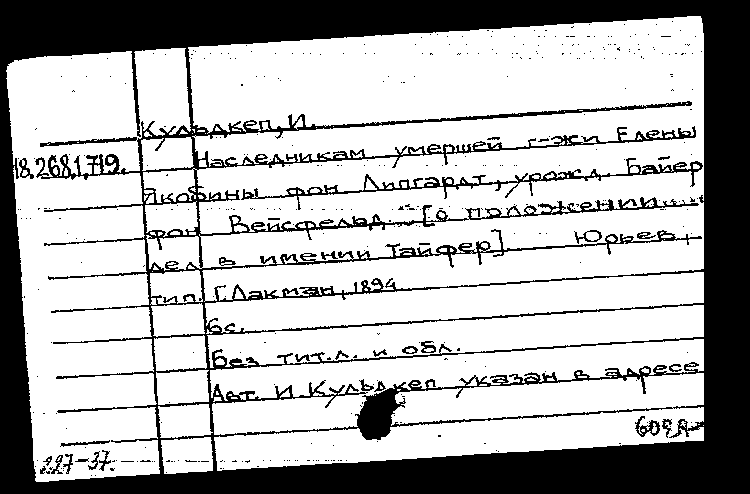 Кульдкеп, И.
18.268.1.719. Наследникам умершей г-жи Елены
Якобины фон Липгардт, урожд. Байер
фон Вейсфельд ... [о положении ...
дел в имении Тайфер]. Юрьев,
тип. Г. Лакман, 1894
6с.
Без тит.л. и обл.
Авт. И. Кульдкеп указан в адресе
227-37.